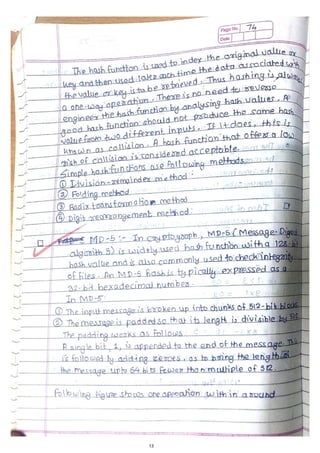 Page No. 74
Date
The hash function is used to index the original value or
key and then used later each time the data associated with
the value or key is to be retrieved. Thus hashing is always
a one-way operation. There is no need to reverse
engineer the hash function by analysing hash values. A
good hash function should not produce the same hash
value from two different inputs. If it does, this is
known as collision. A hash function that offers a low
risk of collision is considered acceptable.
Simple hash functions are following methods:
① Division-remainder method:
② Folding method
③ Radix transformation method
④ Digit rearrangement method:
MD-5 :- In cryptograph, MD-5 (Message-Digest
algorithm 5) is widely used hash function with a 128-bit
hash value and is also commonly used to check integrity
of files. An MD-5 hash is typically expressed as a
32-bit hexadecimal number.
In MD-5
① The input message is broken up into chunks of 512-bit blocks
② The message is padded so that its length is divisible by 512
The padding works as follows
A single bit, 1, is appended to the end of the message. This
is followed by adding zeroes, as to bring the length of
the message upto 64 bits fewer than multiple of 512.
Following figure shows one operation within a round
12